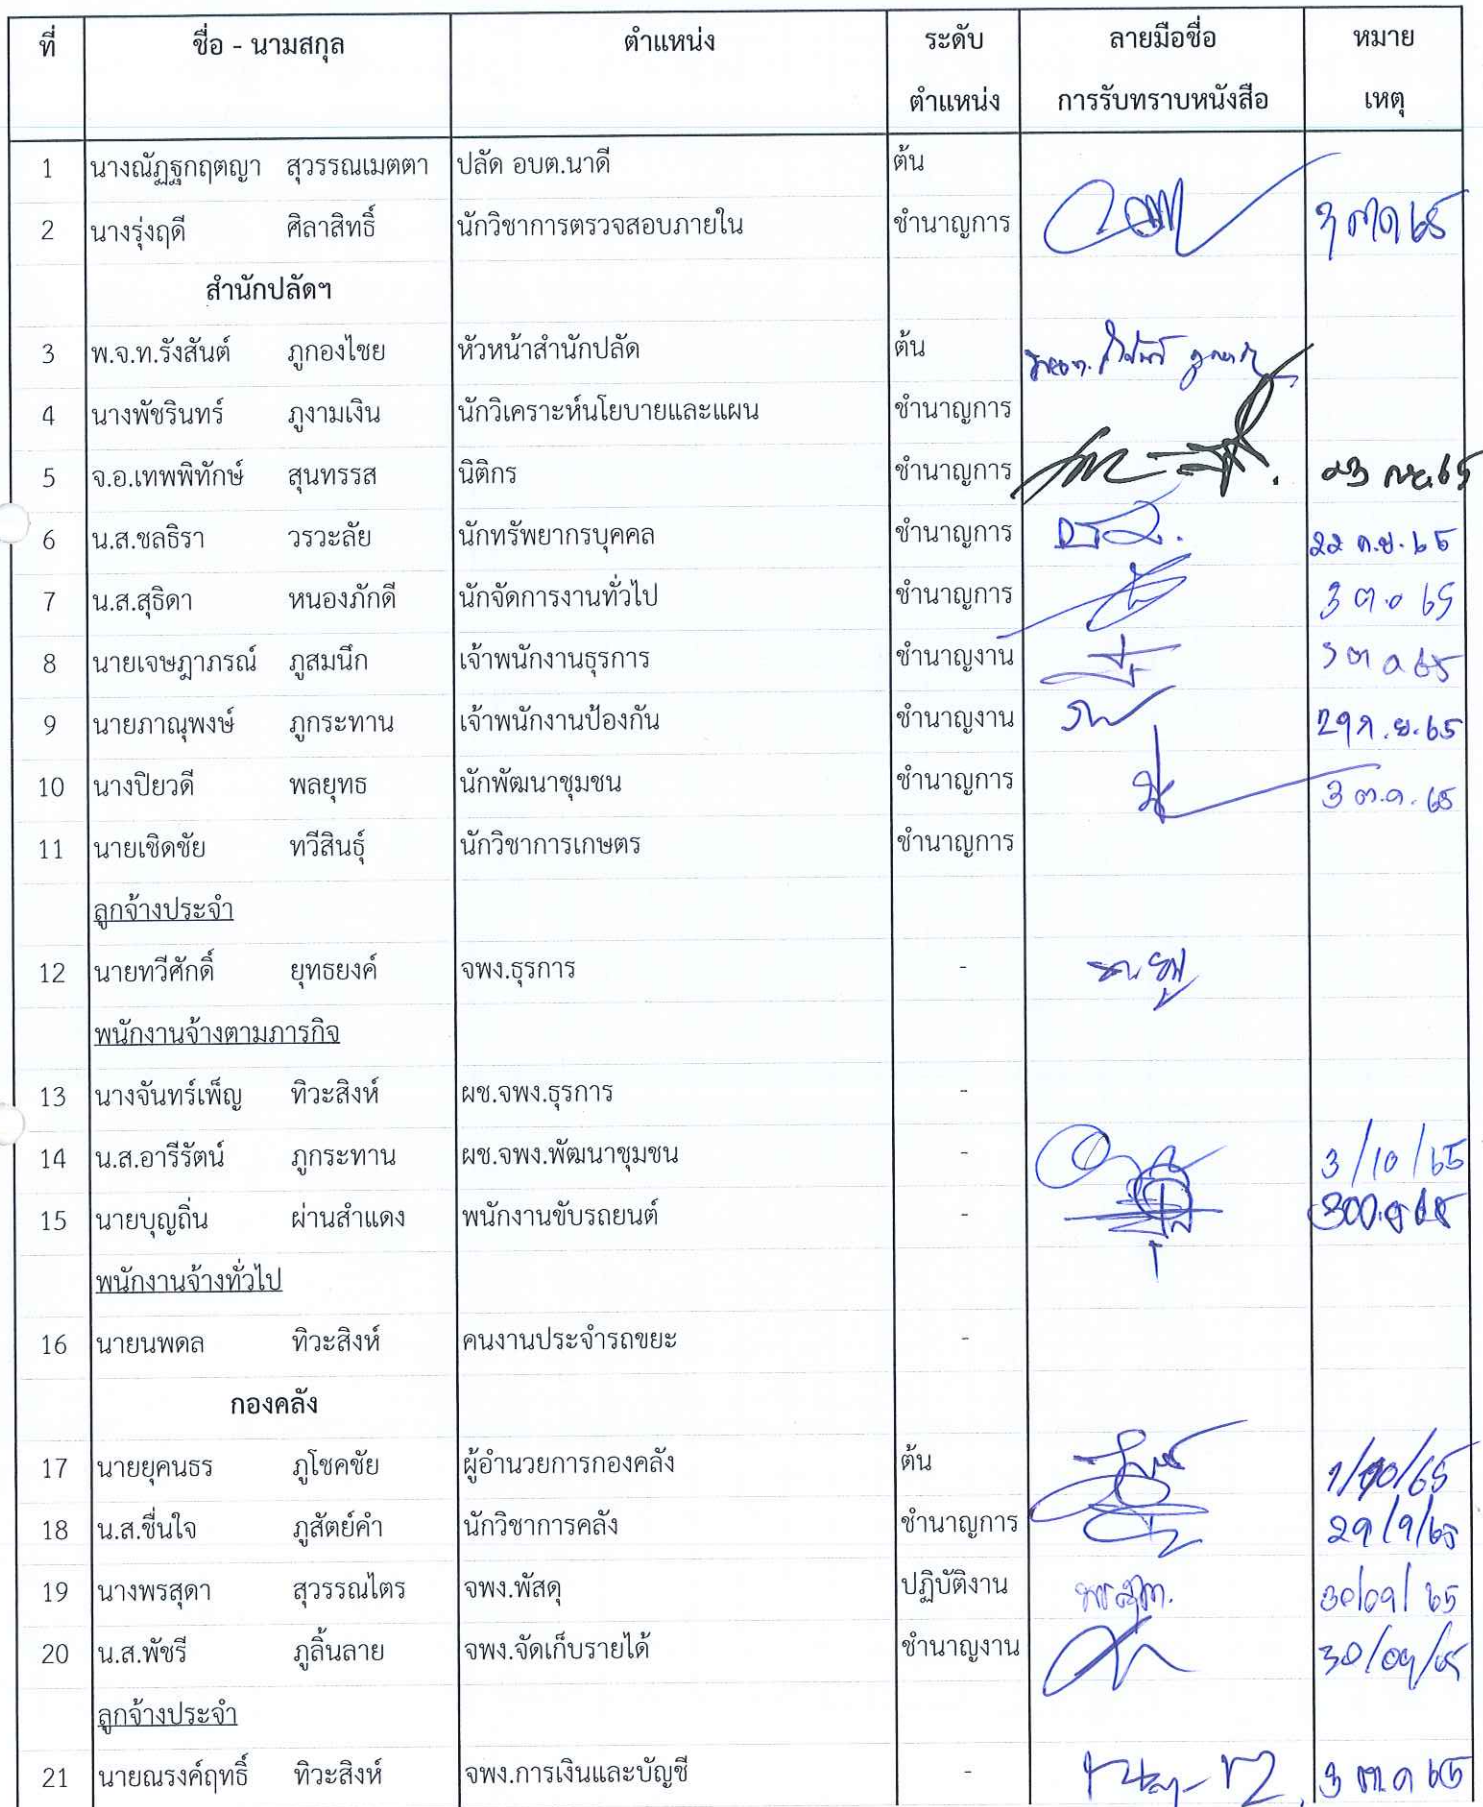 ที่ ชื่อ - นามสกุล ตำแหน่ง ระดับ ลายมือชื่อ หมาย
ตำแหน่ง การรับทราบหนังสือ เหตุ
1 นางณัฏฐกฤตญา สุวรรณเมตตา ปลัด อบต.นาดี ต้น
2 นางรุ่งฤดี ศิลาสิทธิ์ นักวิชาการตรวจสอบภายใน ชำนาญการ 3 ตค 65
สำนักปลัดฯ
3 พ.จ.ท.รังสันต์ ภูกองไชย หัวหน้าสำนักปลัด ต้น
4 นางพัชรินทร์ ภูงามเงิน นักวิเคราะห์นโยบายและแผน ชำนาญการ
5 จ.อ.เทพพิทักษ์ สุนทรรส นิติกร ชำนาญการ ๒3 กย.65
6 น.ส.ชลธิรา วรวะลัย นักทรัพยากรบุคคล ชำนาญการ ๒๒ ก.ย. 65
7 น.ส.สุธิดา หนองภักดี นักจัดการงานทั่วไป ชำนาญการ 3 ต.ค 65
8 นายเจษฎาภรณ์ ภูสมนึก เจ้าพนักงานธุรการ ชำนาญงาน 3 ต ค 65
9 นายภาณุพงษ์ ภูกระทาน เจ้าพนักงานป้องกัน ชำนาญงาน 29 ก.ย.65
10 นางปิยวดี พลยุทธ นักพัฒนาชุมชน ชำนาญการ 3 ต.ค. 65
11 นายเชิดชัย ทวีสินธุ์ นักวิชาการเกษตร ชำนาญการ
ลูกจ้างประจำ
12 นายทวีศักดิ์ ยุทธยงค์ จพง.ธุรการ -
พนักงานจ้างตามภารกิจ
13 นางจันทร์เพ็ญ ทิวะสิงห์ ผช.จพง.ธุรการ -
14 น.ส.อารีรัตน์ ภูกระทาน ผช.จพง.พัฒนาชุมชน - 3/10/65
15 นายบุญถิ่น ผ่านสำแดง พนักงานขับรถยนต์ -
พนักงานจ้างทั่วไป
16 นายนพดล ทิวะสิงห์ คนงานประจำรถขยะ -
กองคลัง
17 นายยุคนธร ภูโชคชัย ผู้อำนวยการกองคลัง ต้น 1/10/65
18 น.ส.ชื่นใจ ภูสัตย์คำ นักวิชาการคลัง ชำนาญการ 29/9/65
19 นางพรสุดา สุวรรณไตร จพง.พัสดุ ปฏิบัติงาน พรสุดา. 30/09/65
20 น.ส.พัชรี ภูลิ้นลาย จพง.จัดเก็บรายได้ ชำนาญงาน 30/09/65
ลูกจ้างประจำ
21 นายณรงค์ฤทธิ์ ทิวะสิงห์ จพง.การเงินและบัญชี - 3 ต.ค 65